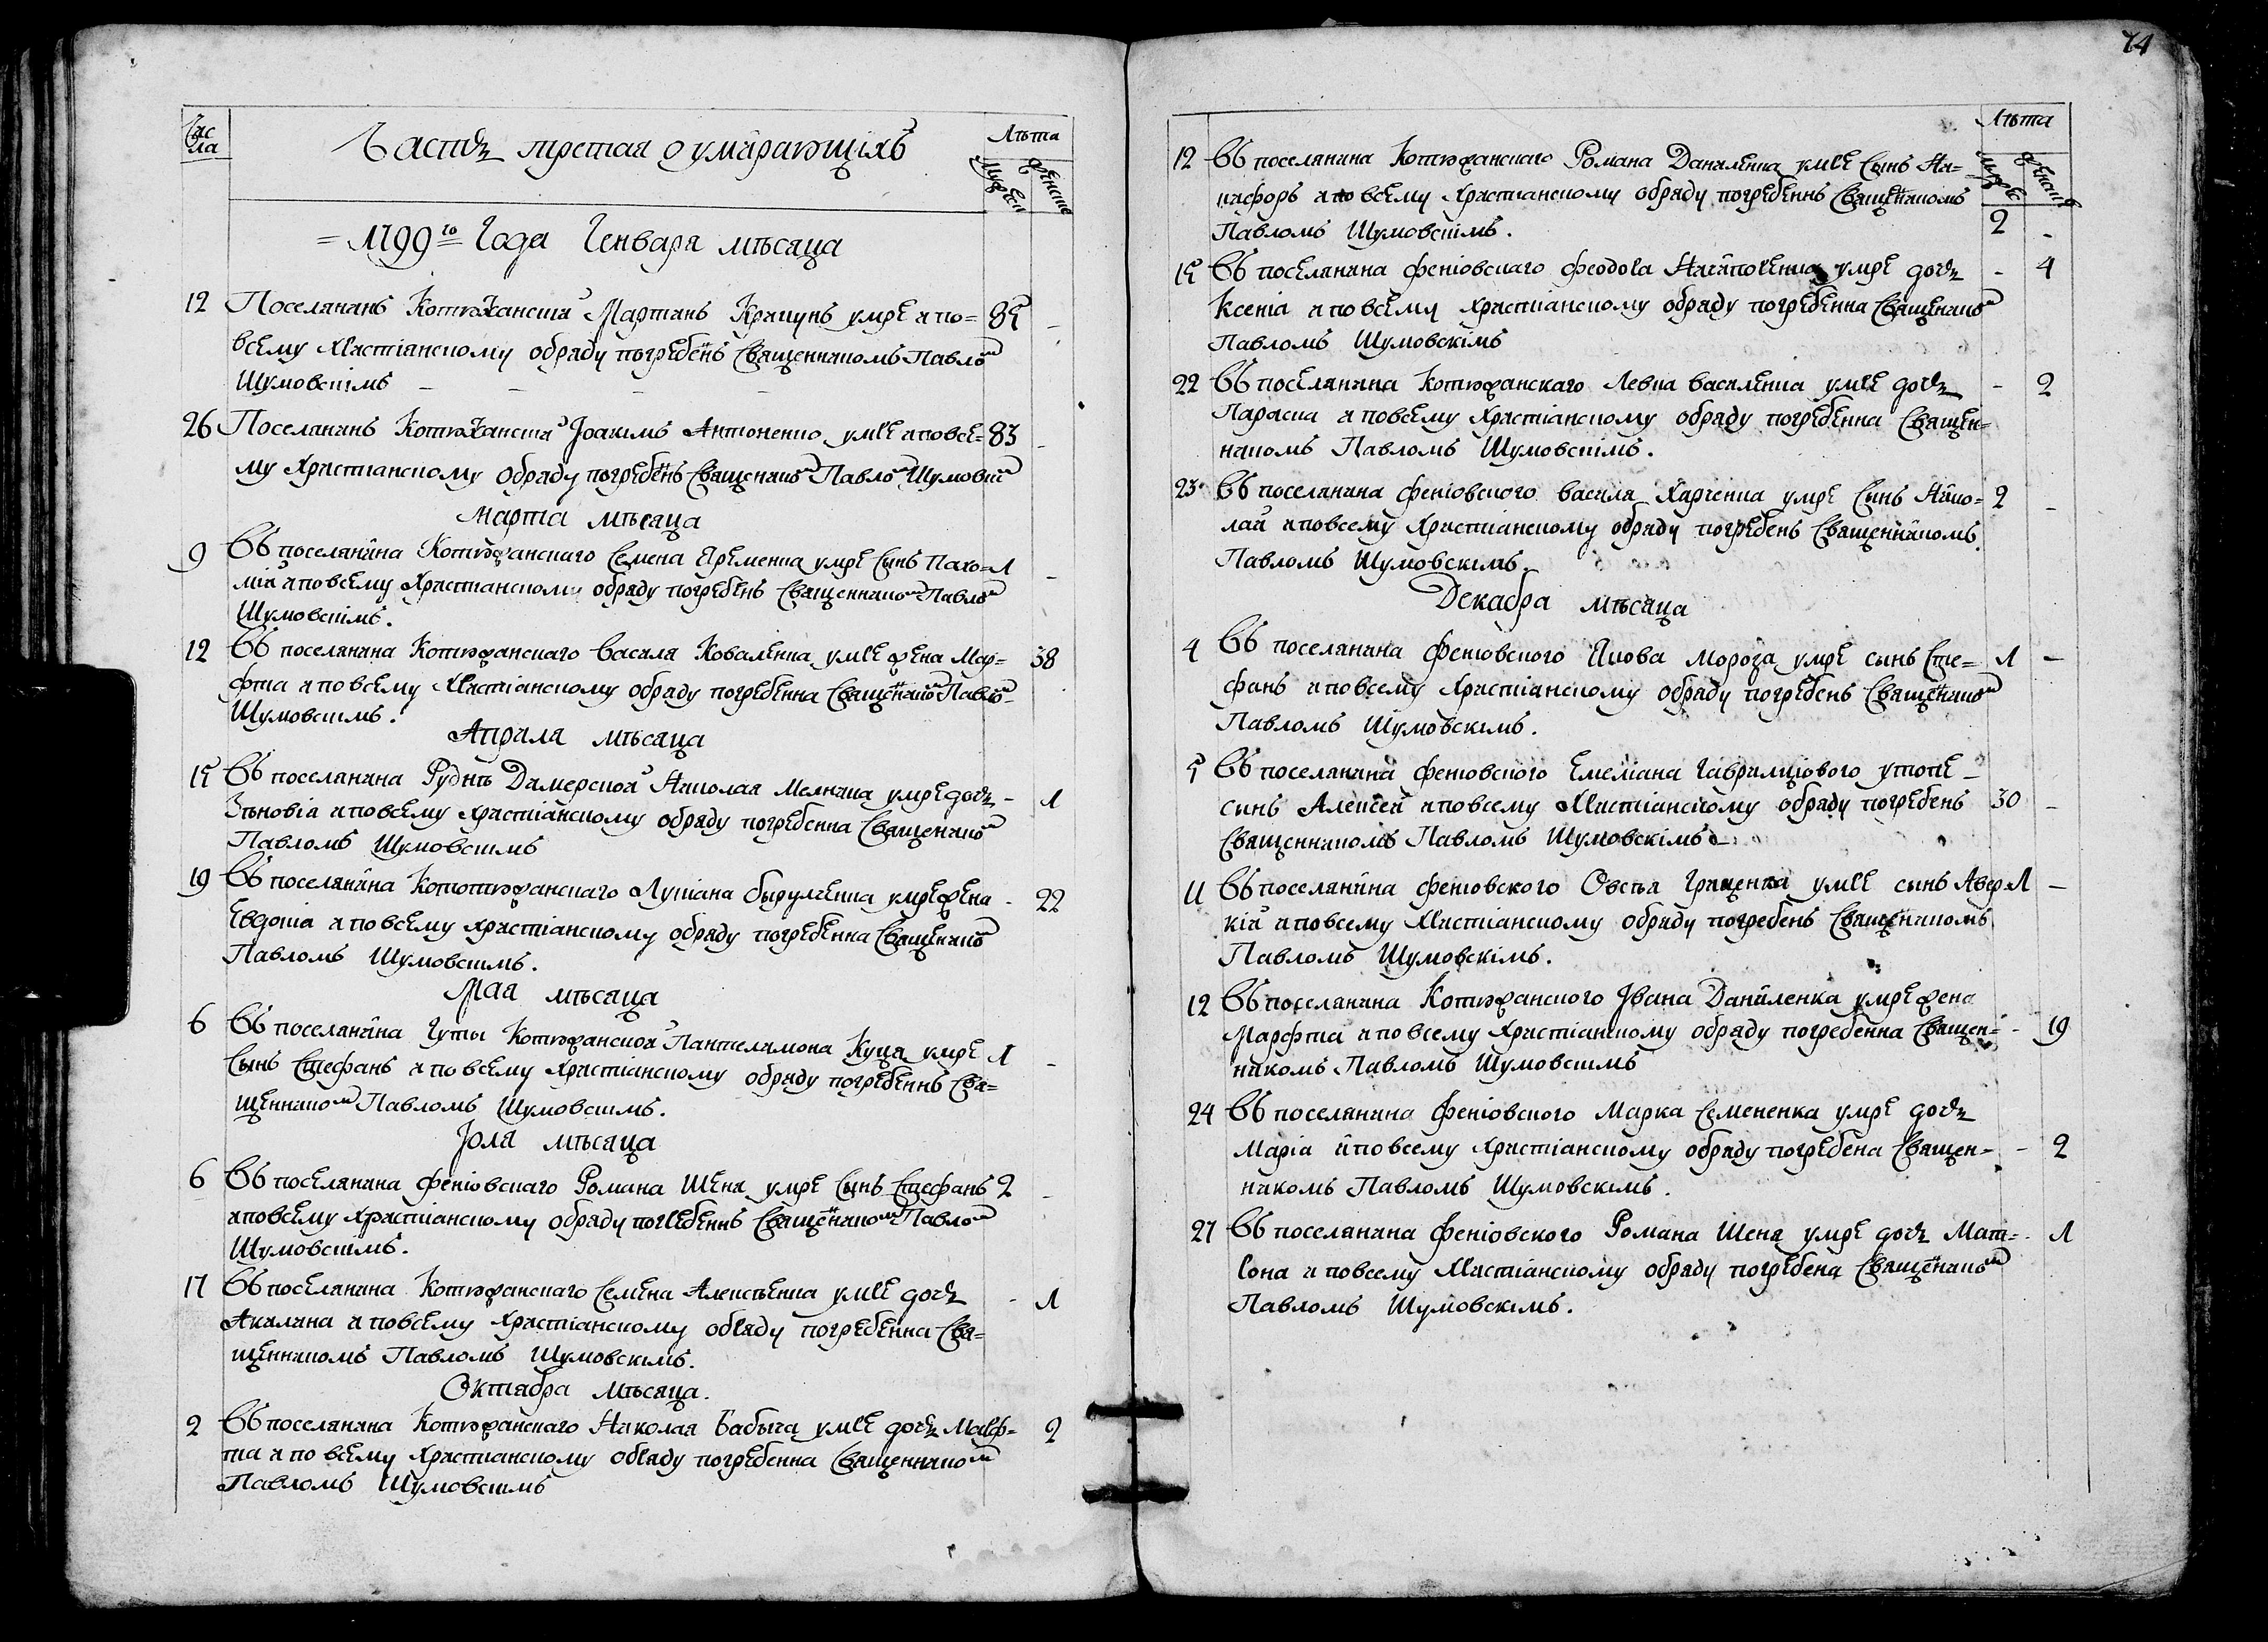 Чис
ла
Часть третая о умирающихъ
Лѣта
Мужеска
Женска
= 1799го = Года Генваря мѣсяца
12 Поселянинъ Котюжанскій Мартинъ Крацунъ умре и по= 85 -
всему Христіанскому обряду погребенъ Священникомъ Павломъ
Шумовскімъ - - -
26 Поселянинъ Котюжанскій Іоакимъ Антоненко умре и по все= 83 -
му Христианскому обряду погребенъ Священикомъ Павломъ Шумовскім
Марта мѣсяца
9 Въ поселянина Котюжанскаго Семена Яременка умре сынъ Пахо= 1 -
мій и по всему Христианскому обряду погребенъ Священникомъ Павлом
Шумовскімъ.
12 Въ поселянина Котюжанскаго Василя Коваленка умре жена Мар= 38
фта и по всему Христіанскому обряду погребенна Священикомъ Павлом
Шумовскимъ.
Априля мѣсяца
15 Въ поселянина Руднѣ Димерской Николая Мелника умре дочъ - 1
Зѣновіа и по всему христіанскому обряду погребенна Священикомъ
Павломъ Шумовскимъ
19 Въ поселянина Кототюжанскаго Лукіана Бырулченка умре жена - 22
Евдокіа и по всему христианскому обряду погребенна Священикомъ
Павломъ Шумовскимъ.
Маа мѣсяца
6 Въ поселянина Гуты Котюжанской Пантелимона Куца умре 1 -
Сынъ Стефанъ и по всему христіанскому обряду погребеннъ Свя=
щенникомъ Павломъ Шумовскимъ.
Іюля мѣсяца
6 Въ поселянина Феніовскаго Романа Шена умре Сынъ Стефанъ 2 -
и по всему христианскому обряду погребеннъ Священикомъ Павлом
Шумовскимъ.
17 Въ поселянина Котюжанскаго Семена Алексѣенка умре дочъ - 1
Акилина и по всему христіанскому обряду погребенна Свя=
щенникомъ Павломъ Шумовскимъ.
Октабра мѣсяца.
2 Въ поселянина Котюжанскаго Николая Бабыча умре дочъ Марф= 2
та и по всему христианскому обряду погребенна Священником
Павломъ Шумовскимъ
74
Лѣта
Мужес
Женска
12 Въ поселянина Котюжанскаго Романа Даниленка умре Сынъ Ни=
кифоръ и по всему христианскому обряду погребеннъ Священикомъ
Павломъ Шумовскімъ. 2 -
15 Въ поселянина Феніовскаго Феодора умре дочъ - 4
Ксеніа и по всему христіанскому обряду погребенна Священиком
Павломъ Шумовскімъ
22 Въ поселянина Котюжанскаго Левка Василенка умре дочъ - 2
Параска и по всему христіанскому обряду погребенна Священ=
никомъ Павломъ Шумовскімъ.
23 Въ поселянина Феніовского Василя Харченка умре Сынъ Нико= 2 -
лай и по всему христіанскому обряду погребенъ Священникомъ
Павломъ Шумовскімъ.
Декабра мѣсяца
4 Въ поселянина Феніовского Якова Мороза умре сынъ Сте= 1 -
фанъ и по всему христіанскому обряду погребенъ Священиком
Павломъ Шумовскімъ.
5 Въ поселянина Феніовского Емеліана Гаврилцового утопе -
сынъ Алексей и по всему Христіанскому обряду погребенъ 30 -
Священникомъ Павломъ Шумовскімъ -
11 Въ поселянина Феніовского Овсѣя Гриценка умре сынъ Авер= 1 -
кій и по всему Христіанскому обряду погребенъ Священикомъ
Павломъ Шумовскімъ.
12 Въ поселянина Котюжанского Ивана Даниленка умре жена
Марфта и по всему христіанскому обряду погребенна Священ= - 19
никомъ Павломъ Шумовскимъ
24 Въ поселянина Феніовского Марка Семененка умре дочъ
Маріа и по всему христіанскому обряду погребена Священ= - 2
никомъ Павломъ Шумовскімъ.
27 Въ поселянина Феніовского Романа Шена умре дочъ Мат= - 1
рона и по всему Христіанскому обряду погребена Священиком
Павломъ Шумовскімъ.